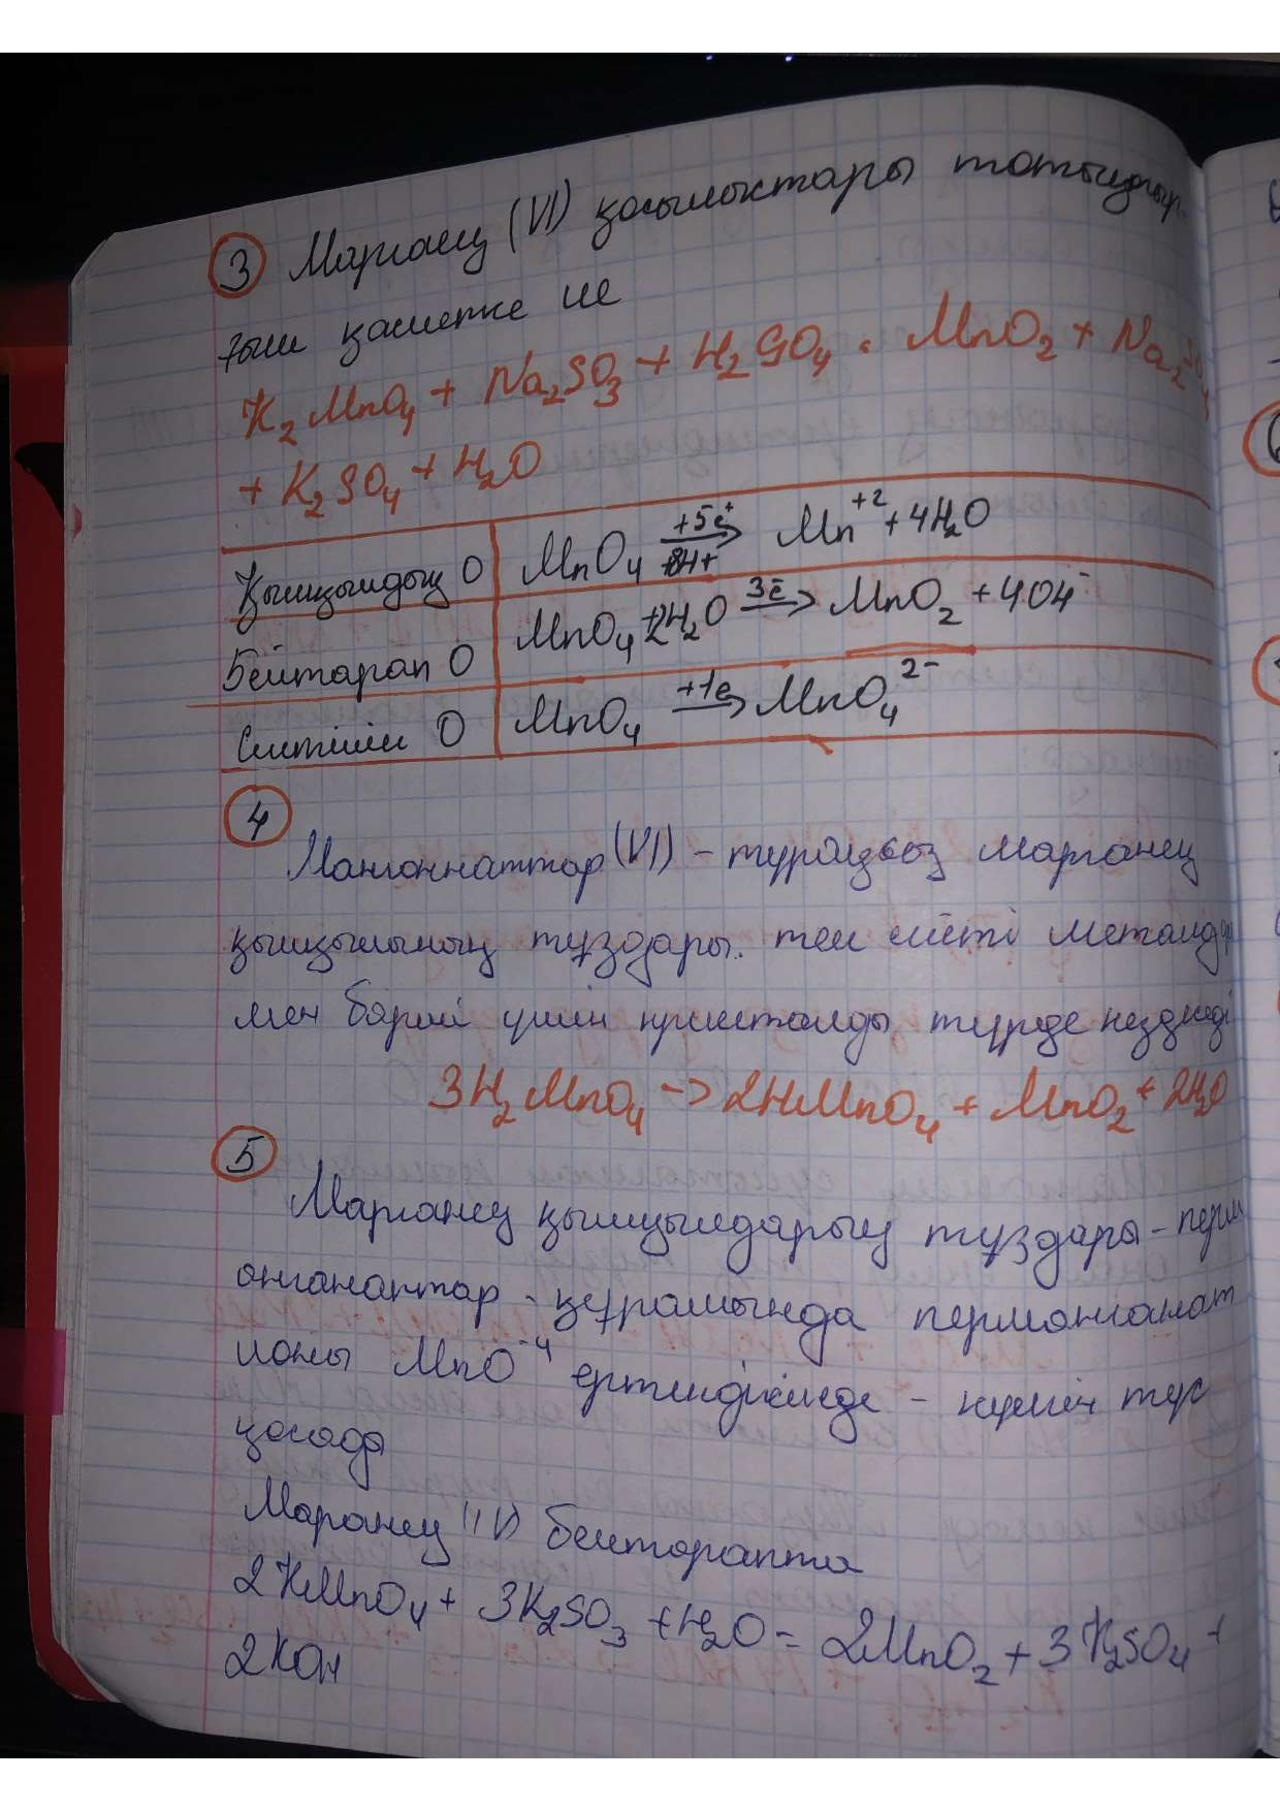 3 Марганец (VI) қосылыстары тотықтыр-
ғыш қасиетке ие
K₂MnO₄ + Na₂SO₃ + H₂SO₄ = MnO₂ + Na₂SO₄
+ K₂SO₄ + H₂O
Қышқылдық O MnO₄ +5e⁺ → 8H+ Mn⁺² + 4H₂O
Бейтарап O MnO₄ + 2H₂O 3ē → MnO₂ + 4OH⁻
Сілтілік O MnO₄ +1e → MnO₄²⁻
4
Манганнаттар (VI) – тұрақсыз марганец
қышқылының тұздары. тек сілті металдар
мен барий үшін кристалды түрде кездеседі
3H₂MnO₄ → 2HMnO₄ + MnO₂ + 2H₂O
5
Марганец қышқылдарың тұздары – перм
анганаттар - құрамында перманганат
ионы MnO⁻⁴ ертіндісінде – күлгін түс
қосады
Марганец (IV) бейтарапта
2KMnO₄ + 3K₂SO₃ + H₂O = 2MnO₂ + 3K₂SO₄ +
2KOH